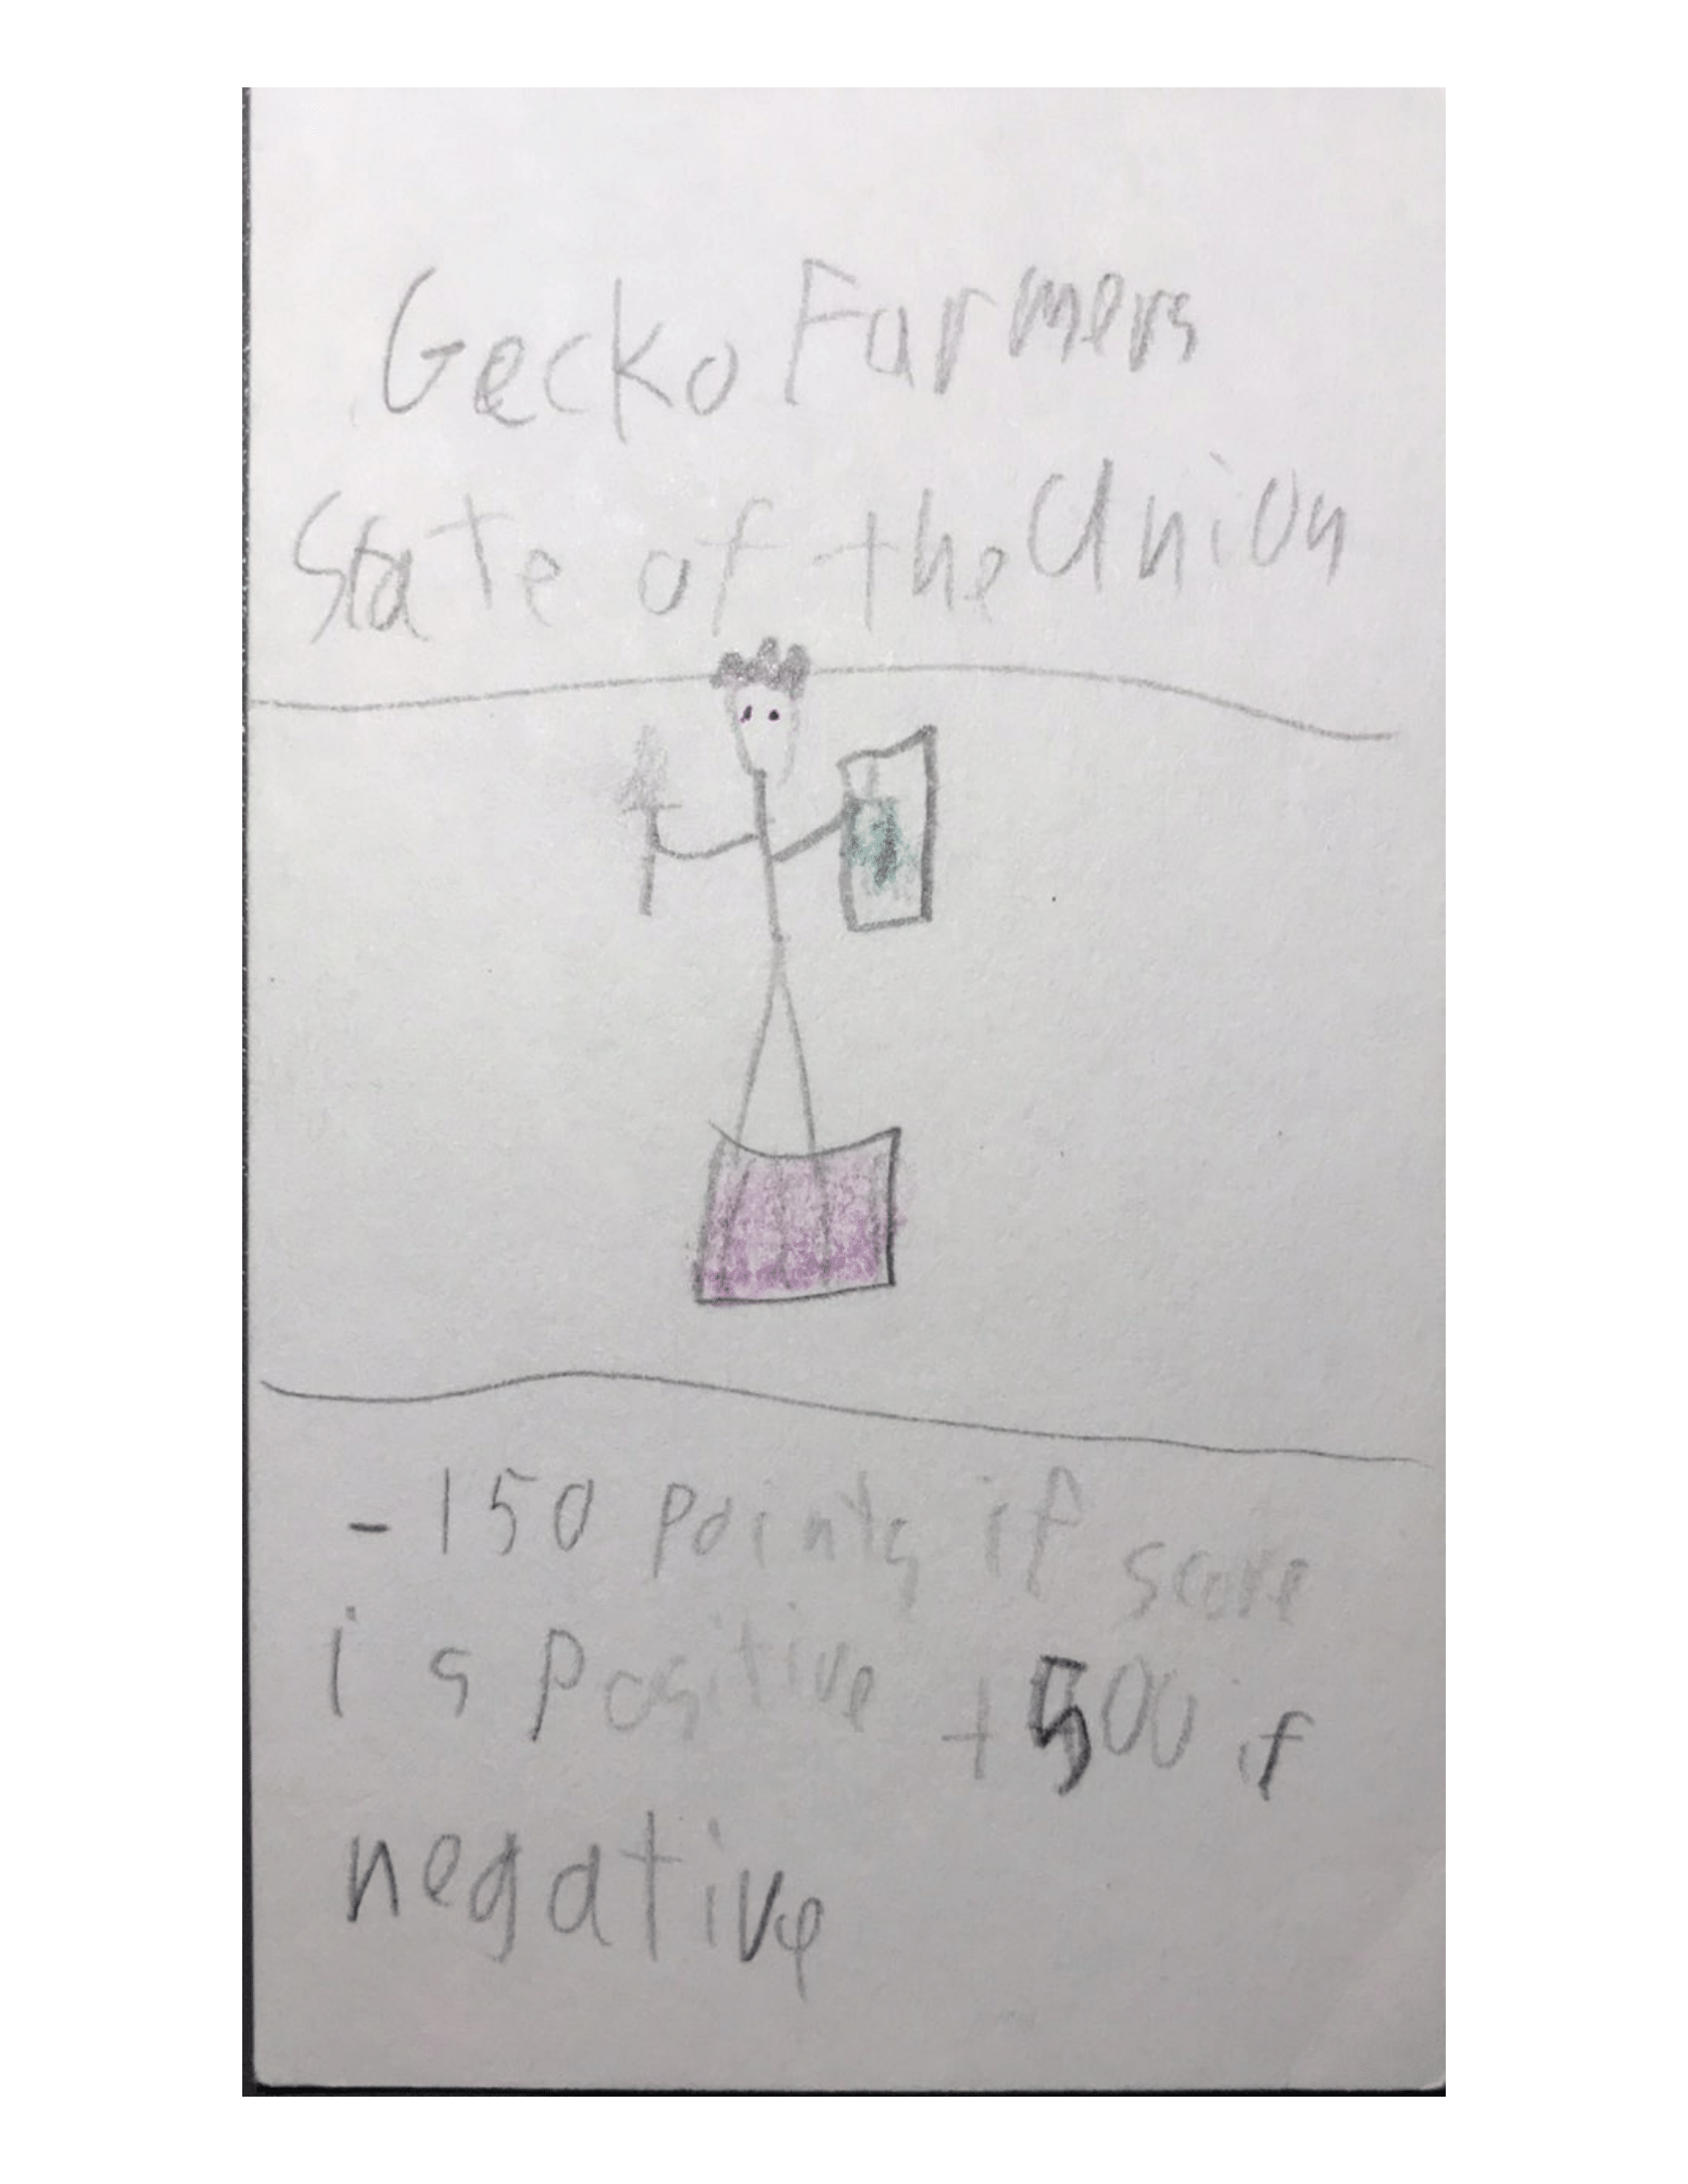 Gecko Farmers
State of the Union
-150 points if score
is positive +500 if
negative